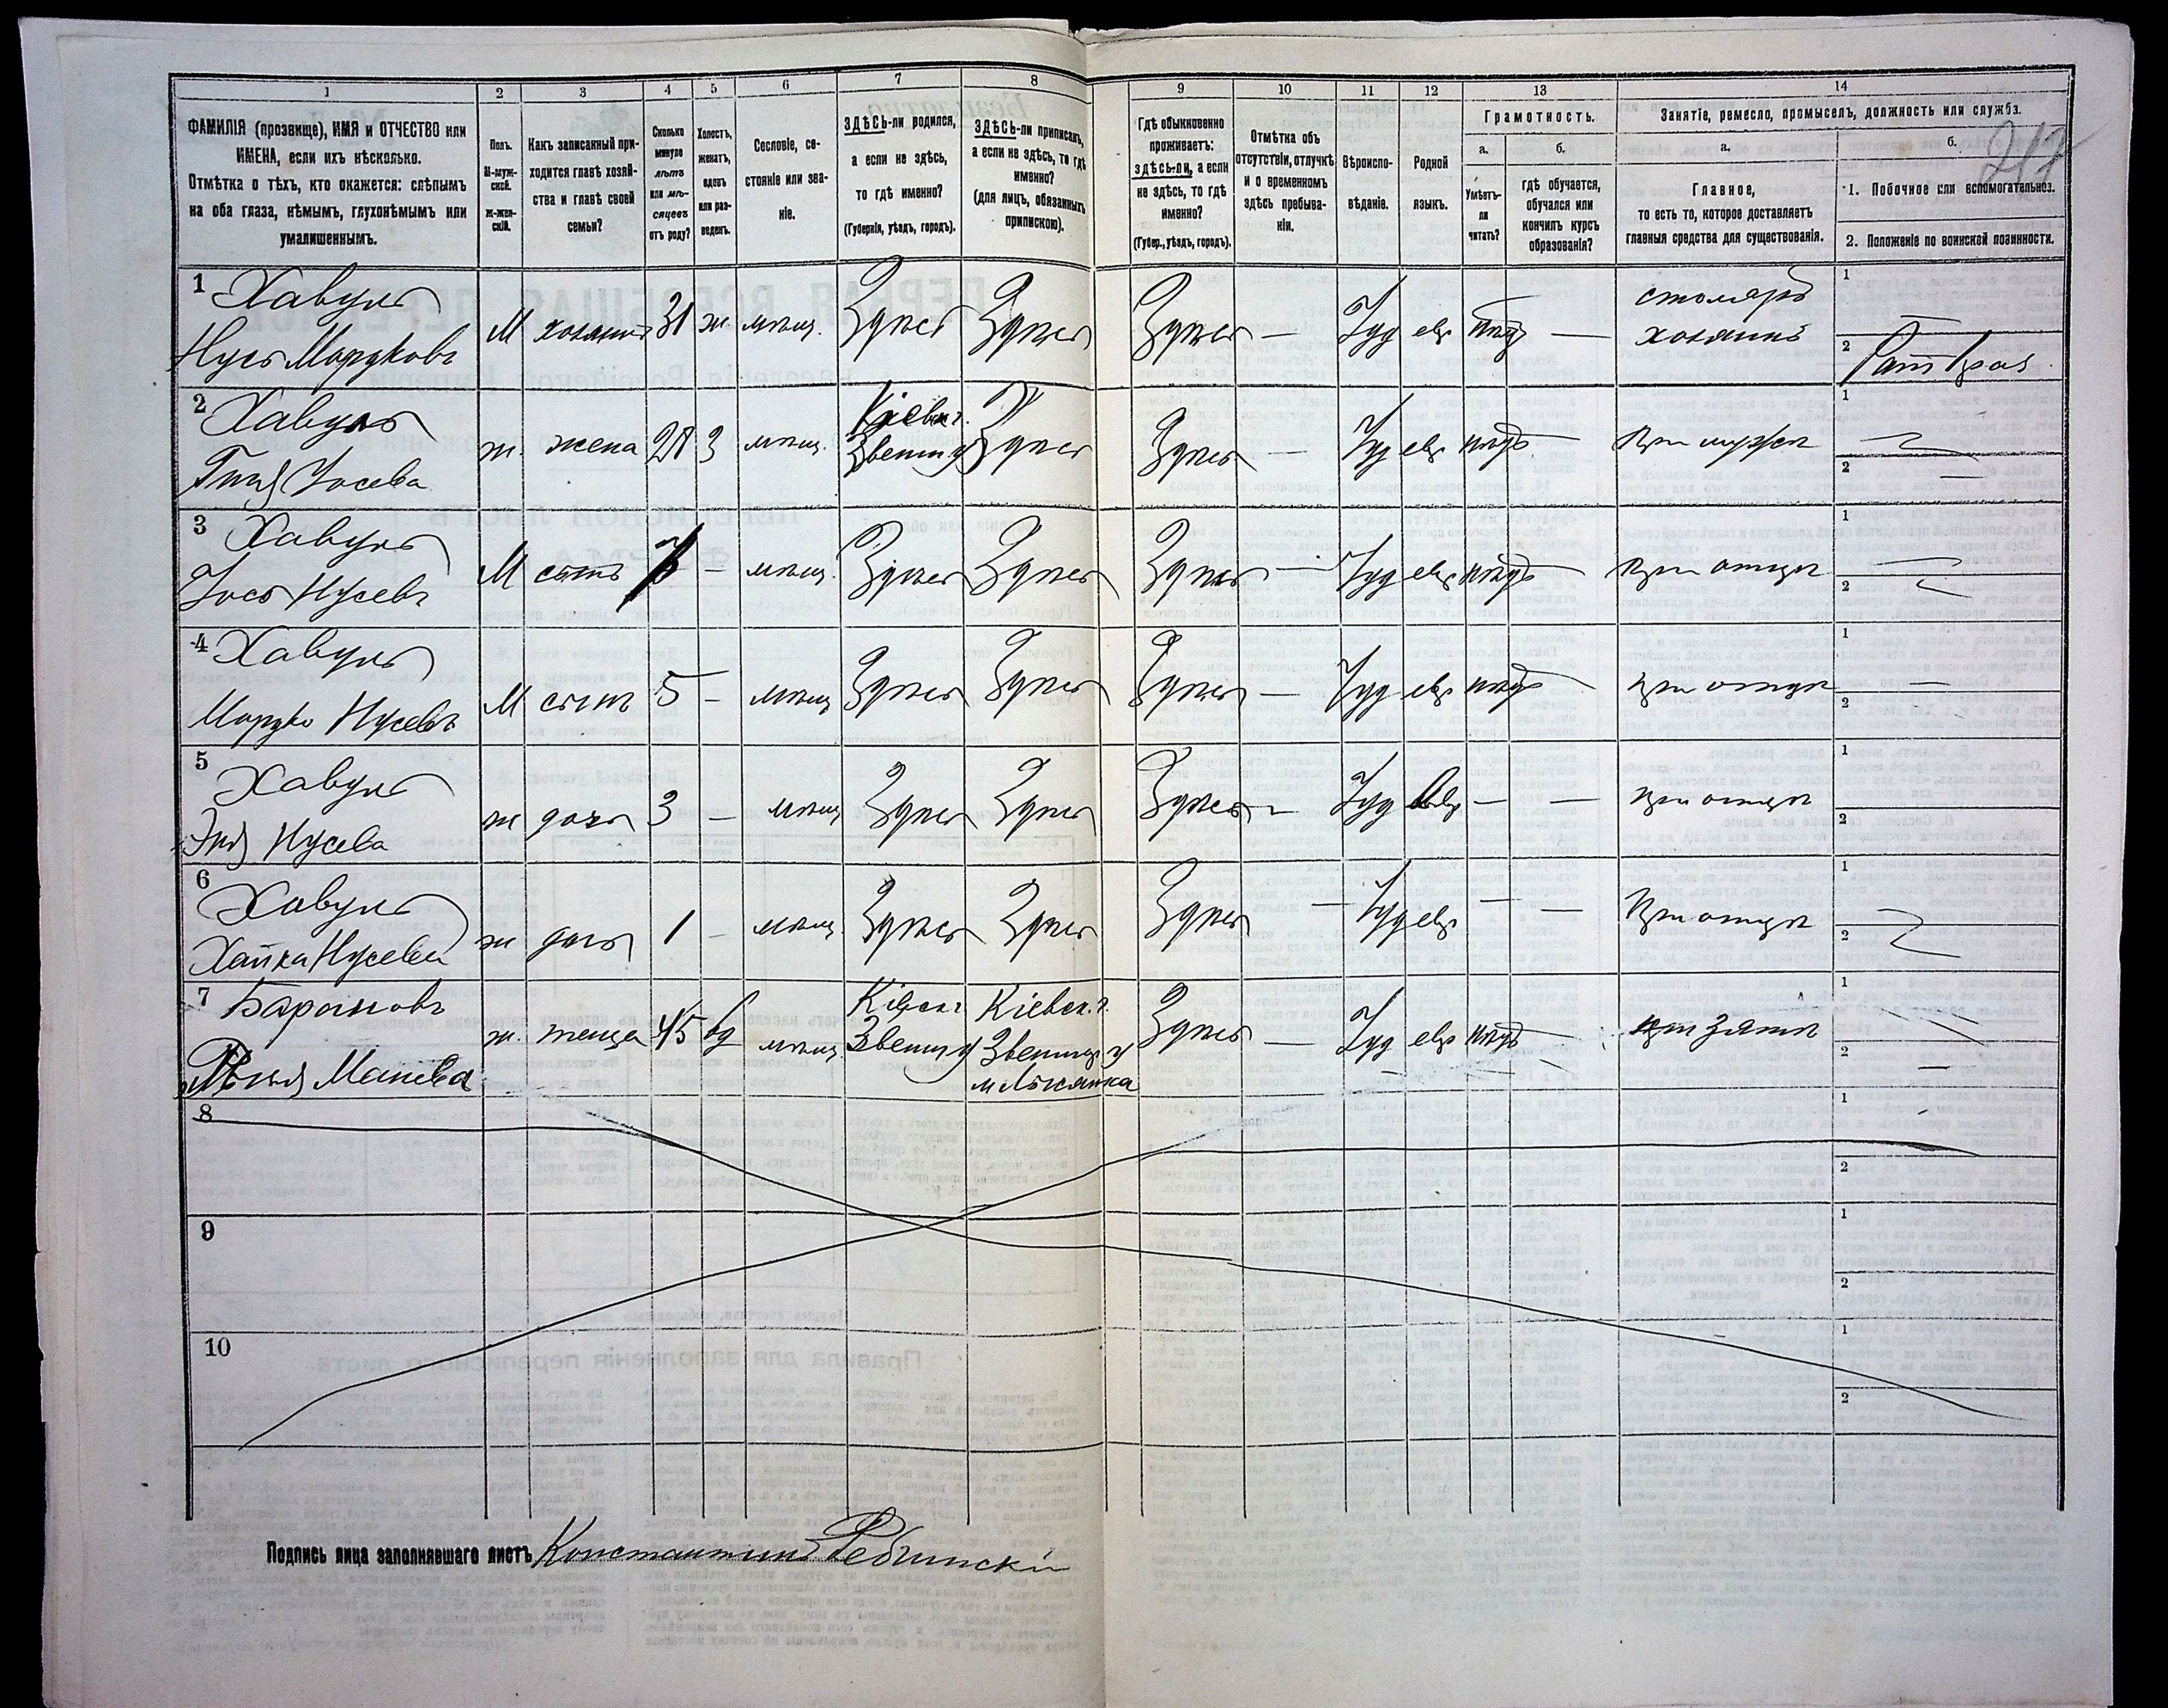 1 2 3 4 5 6 7 8 9 10 11 12 13 14
ФАМИЛІЯ (прозвище), ИМЯ и ОТЧЕСТВО или
ИМЕНА, если ихъ нѣсколько.
Отмѣтка о тѣхъ, кто окажется: слѣпымъ
на оба глаза, нѣмымъ, глухонѣмымъ или
умалишеннымъ.
Полъ.
М-муж-
ской.
Ж-жен-
скій.
Какъ записанный при-
ходится главѣ хозяй-
ства и главѣ своей
семьи?
Сколько
минуло
лѣтъ
или мѣ-
сяцевъ
отъ роду?
Холостъ,
женатъ,
вдовъ
или раз-
веденъ.
Сословіе, со-
стояніе или зва-
ніе.
ЗДѢСЬ-ли родился,
а если не здѣсь,
то гдѣ именно?
(Губернія, уѣздъ, городъ).
ЗДѢСЬ-ли приписанъ,
а если не здѣсь, то гдѣ
именно?
(для лицъ, обязанныхъ
припискою).
Гдѣ обыкновенно
проживаетъ:
здѣсь-ли, а если
не здѣсь, то гдѣ
именно?
(Губер., уѣздъ, городъ).
Отмѣтка объ
отсутствіи, отлучкѣ
и о временномъ
здѣсь пребыва-
ніи.
Вѣроиспо-
вѣданіе.
Родной
языкъ.
Грамотность.
а.
Умѣетъ-
ли
читать?
б.
гдѣ обучается,
обучался или
кончилъ курсъ
образованія?
Занятіе, ремесло, промыселъ, должность или служба.
а.
Главное,
то есть то, которое доставляетъ
главныя средства для существованія.
б.
1. Побочное или вспомогательное.
2. Положеніе по воинской повинности.
217
1 Хавуль
Нусь Мордковъ
М хозяинъ 31 ж. мѣщ. Здѣсь Здѣсь Здѣсь — Іуд евр нѣтъ —
столяръ
хозяинъ
1 —
2
2 Хавуль
Іосева
ж. жена 28 З мѣщ.
Кіевск г.
Звениг у
Здѣсь Здѣсь — Іуд евр нѣтъ — при мужѣ
1
2 —
3 Хавуль
Іось Нусевъ
М сынъ 7 — мѣщ. Здѣсь Здѣсь Здѣсь — Іуд евр нѣтъ — при отцѣ
1 —
2
4 Хавуль
Мордко Нусевъ
М сынъ 5 — мѣщ Здѣсь Здѣсь Здѣсь — Іуд евр нѣтъ — при отцѣ
1 —
2
5 Хавуль
Нусева
ж дочь 3 — мѣщ Здѣсь Здѣсь Здѣсь — Іуд евр — — при отцѣ
1
2
6 Хавуль
Хайка Нусева
ж дочь 1 — мѣщ. Здѣсь Здѣсь Здѣсь — Іуд евр — — при отцѣ
1
2
7 Барановъ
Маневна
ж. теща 45 вд мѣщ
Кіевск г
Звениг у
Кіевск. г.
Звениг у
м Лысянка
Здѣсь — Іуд евр нѣтъ — при зятѣ
1
2 —
8
1
2
9
1
2
10
1
2
Подпись лица заполнявшаго листъ Константинъ